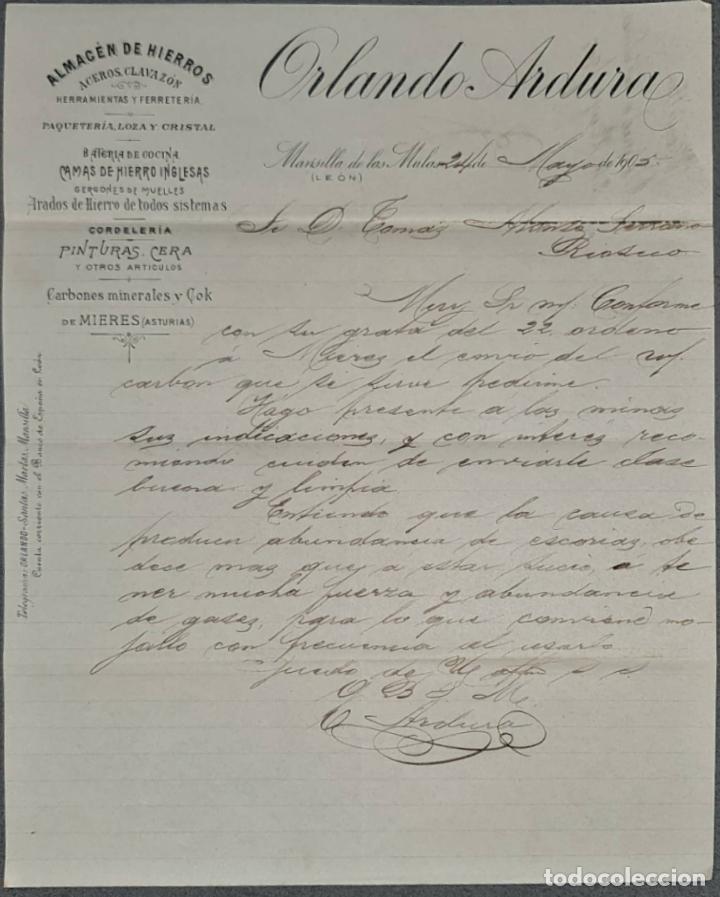 ALMACÉN DE HIERROS
ACEROS, CLAVAZÓN
HERRAMIENTAS Y FERRETERÍA
PAQUETERÍA, LOZA Y CRISTAL
BATERIA DE COCINA
CAMAS DE HIERRO INGLESAS
GERGONES DE MUELLES
Arados de Hierro de todos sistemas
CORDELERÍA
PINTURAS, CERA
Y OTROS ARTICULOS
Carbones minerales y Cok
DE MIERES (ASTURIAS)
Telegramas: ORLANDO-Santas Martas, Mansilla
Cuenta corriente con el Banco de España en León
Orlando Ardura
Mansilla de las Mulas 24 de Mayo de 1905
(LEÓN)
Sr D. Tomás Alonso Serrano
Rioseco
Muy Sr mj. Conforme
con su grata del 22 ordeno
a Mieres el envio del
carbon que se sirve pedirme.
Hago presente a las minas
sus indicaciones, y con interes reco-
miendo cuiden de enviarle clase
buena y limpia
Entiendo que la causa de
producir abundancia de escorias, obe
dece mas que a estar sucio, a te
ner mucha fuerza y abundancia
de gases, para lo que conviene mo-
jallo con frecuencia al usarlo
Quedo de V. s s
Q B S M.
O Ardura
todocoleccion.net